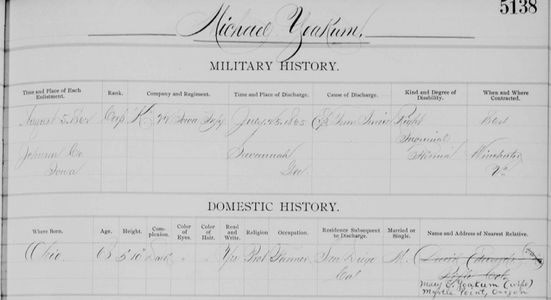 5138
Michael Yoakum,
MILITARY HISTORY.
Time and Place of Each Enlistment. Rank. Company and Regiment. Time and Place of Discharge. Cause of Discharge. Kind and Degree of Disability. When and Where Contracted.
August 5. 1862 Corp K 22 Iowa Inf July 25. 1865 Exp Term Service Right
Inguinal
Johnson Co Savannah Hernia Winchester
Iowa Ga Va
DOMESTIC HISTORY.
Where Born. Age. Height. Complexion. Color of Eyes. Color of Hair. Read and Write. Religion Occupation. Residence Subsequent to Discharge. Married or Single. Name and Address of Nearest Relative.
Ohio 63 5' 10" Dark " " Yes Prot Farmer San Diego M.
Cal
Mary E. Yoakum (wife)
Myrtle Point, Oregon